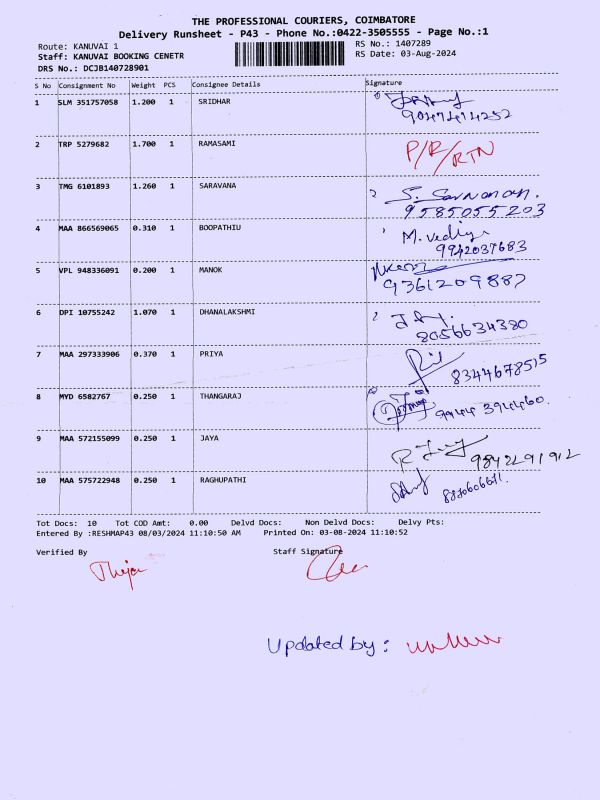 THE PROFESSIONAL COURIERS, COIMBATORE
Delivery Runsheet - P43 - Phone No.:0422-3505555 - Page No.:1
Route: KANUVAI 1 RS No.: 1407289
Staff: KANUVAI BOOKING CENETR RS Date: 03-Aug-2024
DRS No.: DCJB140728901
S No Consignment No Weight PCS Consignee Details Signature
1 SLM 351757058 1.200 1 SRIDHAR
9047474252
2 TRP 5279682 1.700 1 RAMASAMI P/R/RTN
3 TMG 6101893 1.260 1 SARAVANA S. Sarvanan.
9585055203
4 MAA 866569065 0.310 1 BOOPATHIU M. Vediya
9942037683
5 VPL 948336091 0.200 1 MANOK
9361209887
6 DPI 10755242 1.070 1 DHANALAKSHMI
8056634380
7 MAA 297333906 0.370 1 PRIYA
8344678515
8 MYD 6582767 0.250 1 THANGARAJ 9944394460.
9 MAA 572155099 0.250 1 JAYA
9842291912
10 MAA 575722948 0.250 1 RAGHUPATHI
Tot Docs: 10 Tot COD Amt: 0.00 Delvd Docs: Non Delvd Docs: Delvy Pts:
Entered By :RESHMAP43 08/03/2024 11:10:50 AM Printed On: 03-08-2024 11:10:52
Verified By Staff Signature
Updated by: